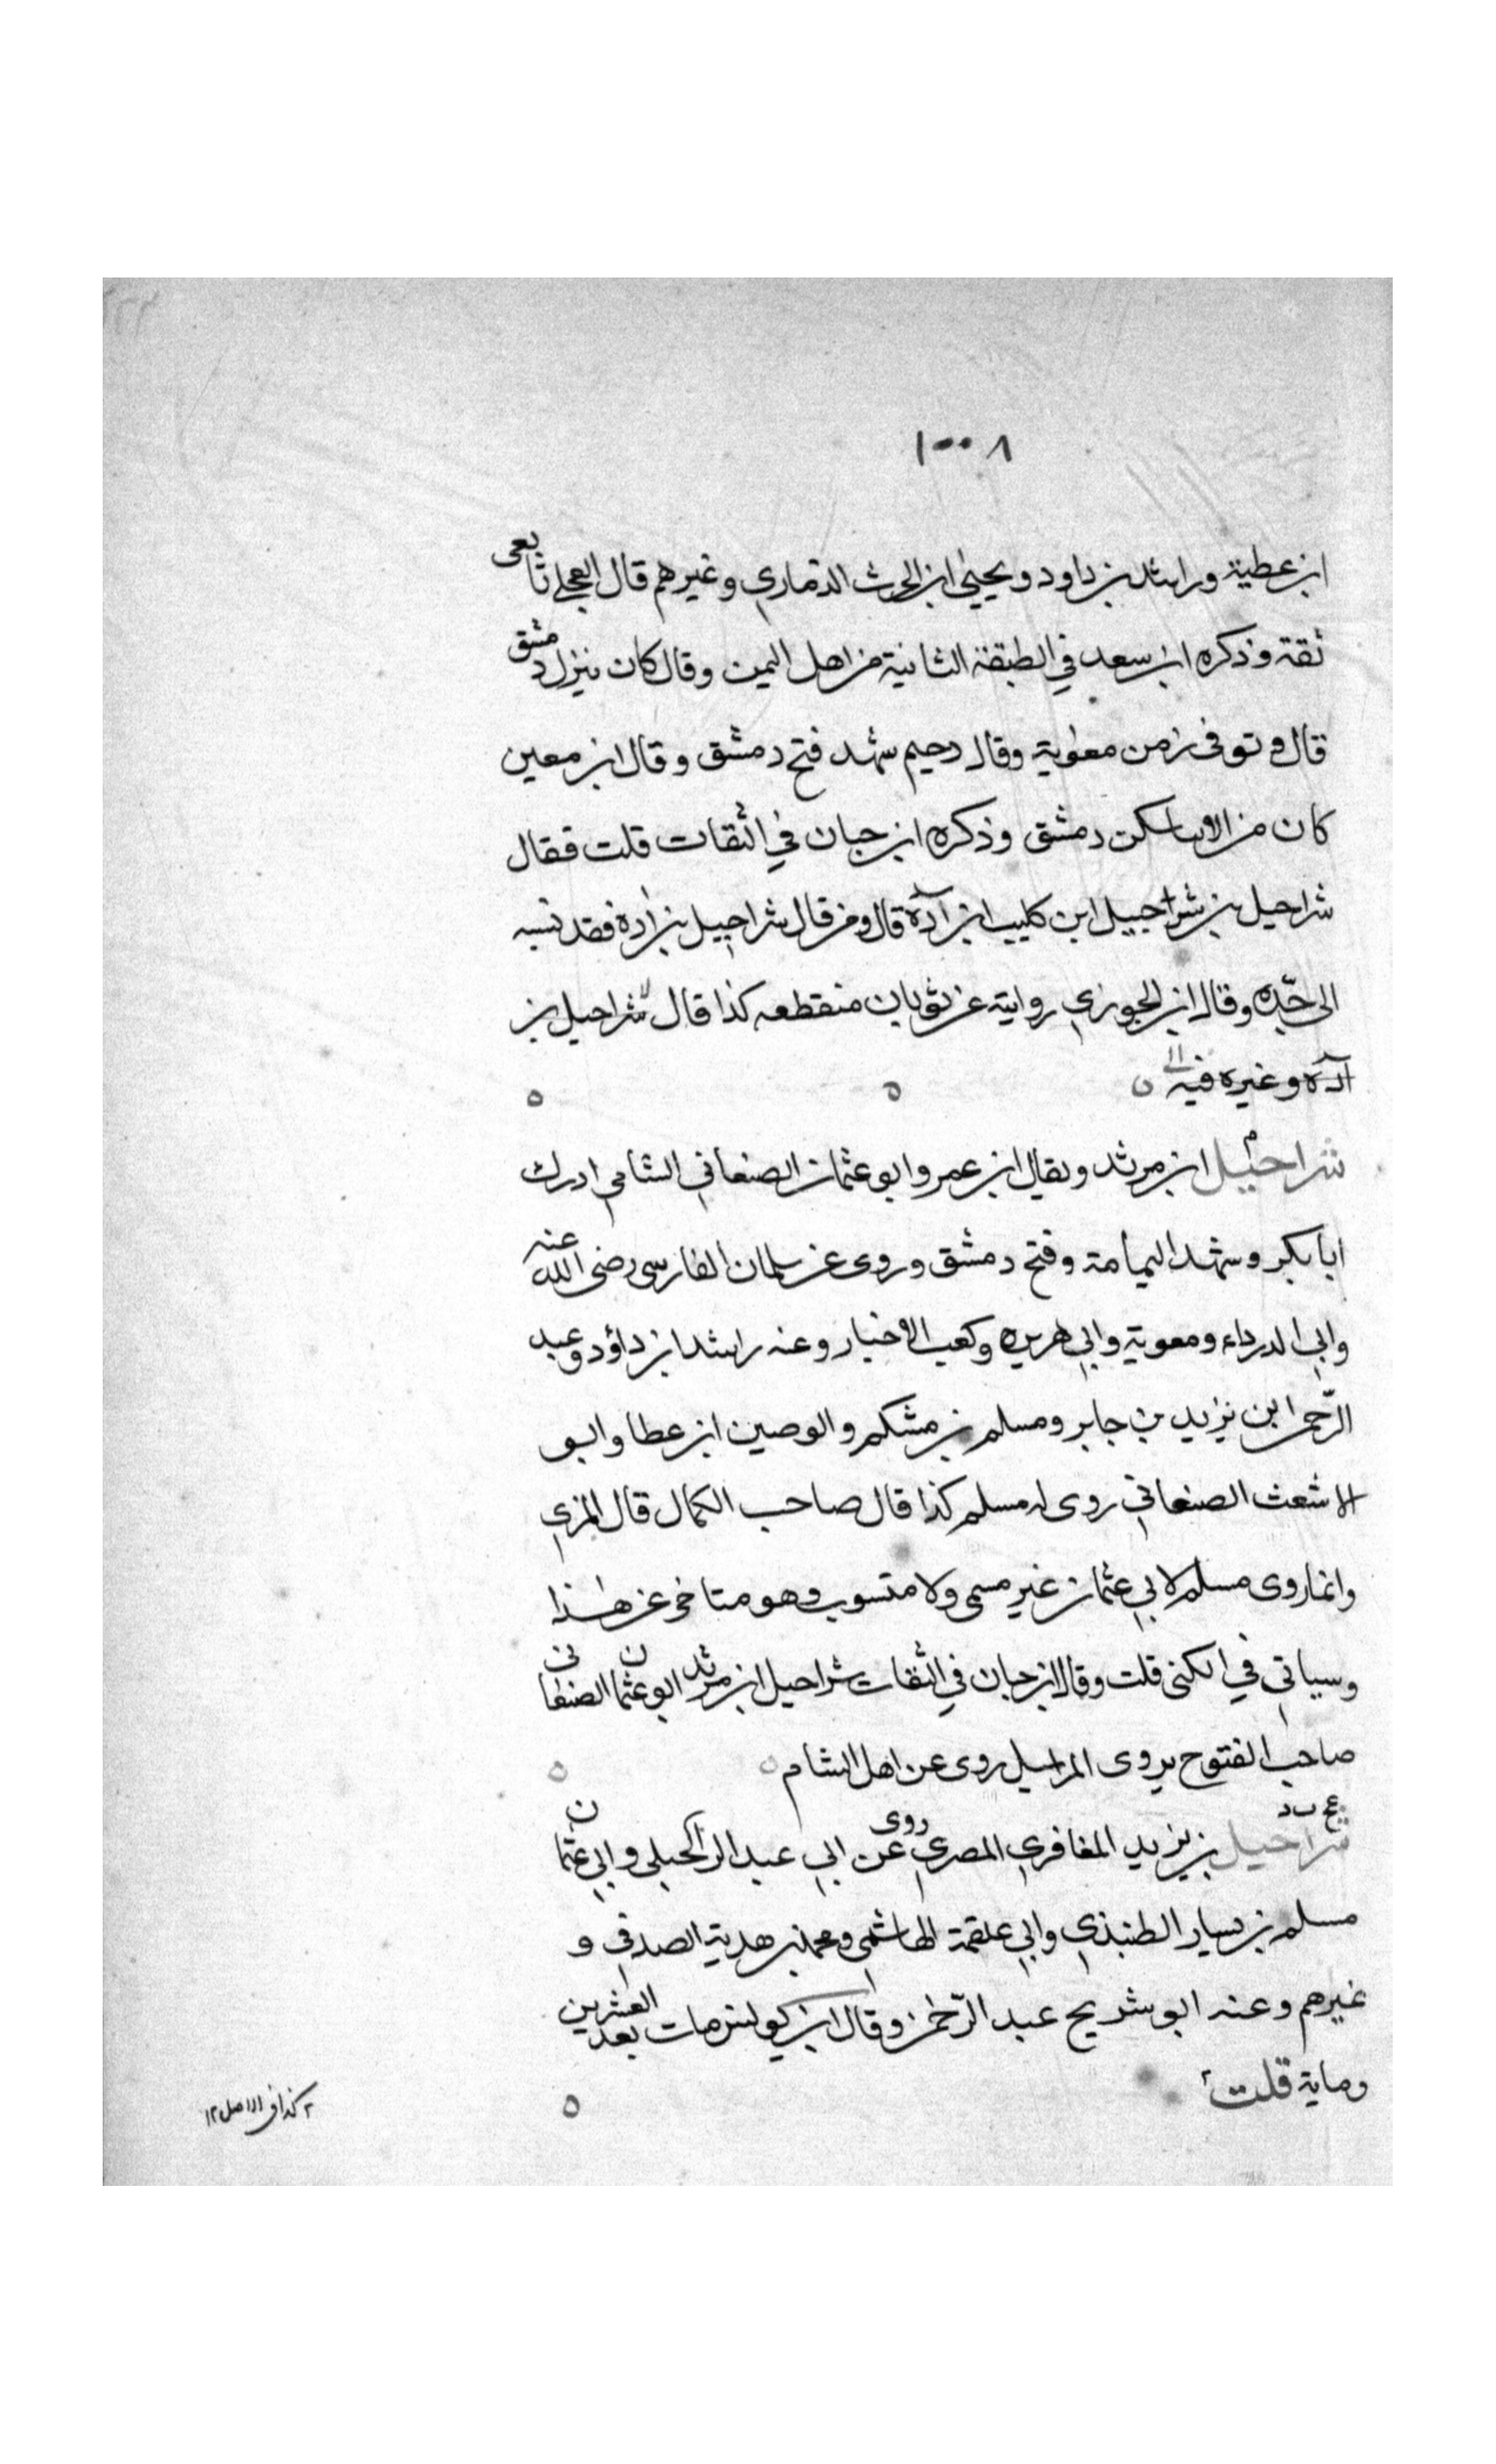 ١٠٠٨
ابن عطية وراشد بن داود ويحيى ابن الحرث الذماري وغيرهم قال العجلي تابعى
ثقة وذكره ابن سعد في الطبقة الثانية من اهل اليمن وقال كان ينزل دمشق
قال وتوفى زمن معوية وقال دحيم شهد فتح دمشق وقال ابن معين
كان من الابنا سكن دمشق وذكره ابن حبان في الثقات قلت فقال
شراحيل بن شراحبيل ابن كليب ابن آدة قال ومن قال شراحيل بن ادة فقد نسبه
الى جّده وقال ابن الجوزي روايته عن ثوبان منقطعه كذا قال شراحيل بن
آدة وغيره فيه
شراحيل ابن مرثد ويقال ابن عمرو ابو عثمان الصنعاني الشامي ادرك
ابا بكر وشهد اليمامة وفتح دمشق وروى عن سلمان الفارسى رضى الله عنه
وابي الدرداء ومعوية وابي هريره وكعب الاخبار وعنه راشد ابن داؤد وعبد
الرّحمن ابن يزيد بن جابر ومسلم بن مشكم والوصين ابن عطا وابو
الاشعث الصنعاني روى له مسلم كذا قال صاحب الكمال قال المزي
وانما روى مسلم لابي عثمان غير مسمى ولا متسوب وهو متاخر عن هذا
وسياتي في الكنى قلت وقال ابن حبان في الثقات شراحيل ابن مرثد ابو عثمان الصنعانى
صاحب الفتوح يروى المراسيل روى عن اهل الشام
عخ د
شراحيل بن يزيد المغافري المصري روى عن ابي عبد الرحمن الحبلى وابي عثمان
مسلم بن يسار الطنبذي وابي علقمة الهاشمي ومحمد بن هدية الصدفي و
غيرهم وعنه ابو شريح عبد الرّحمن وقال ابن يونس مات بعد العشرين
وماية قلت ٢
٢ كذا فى الاصل ١٢